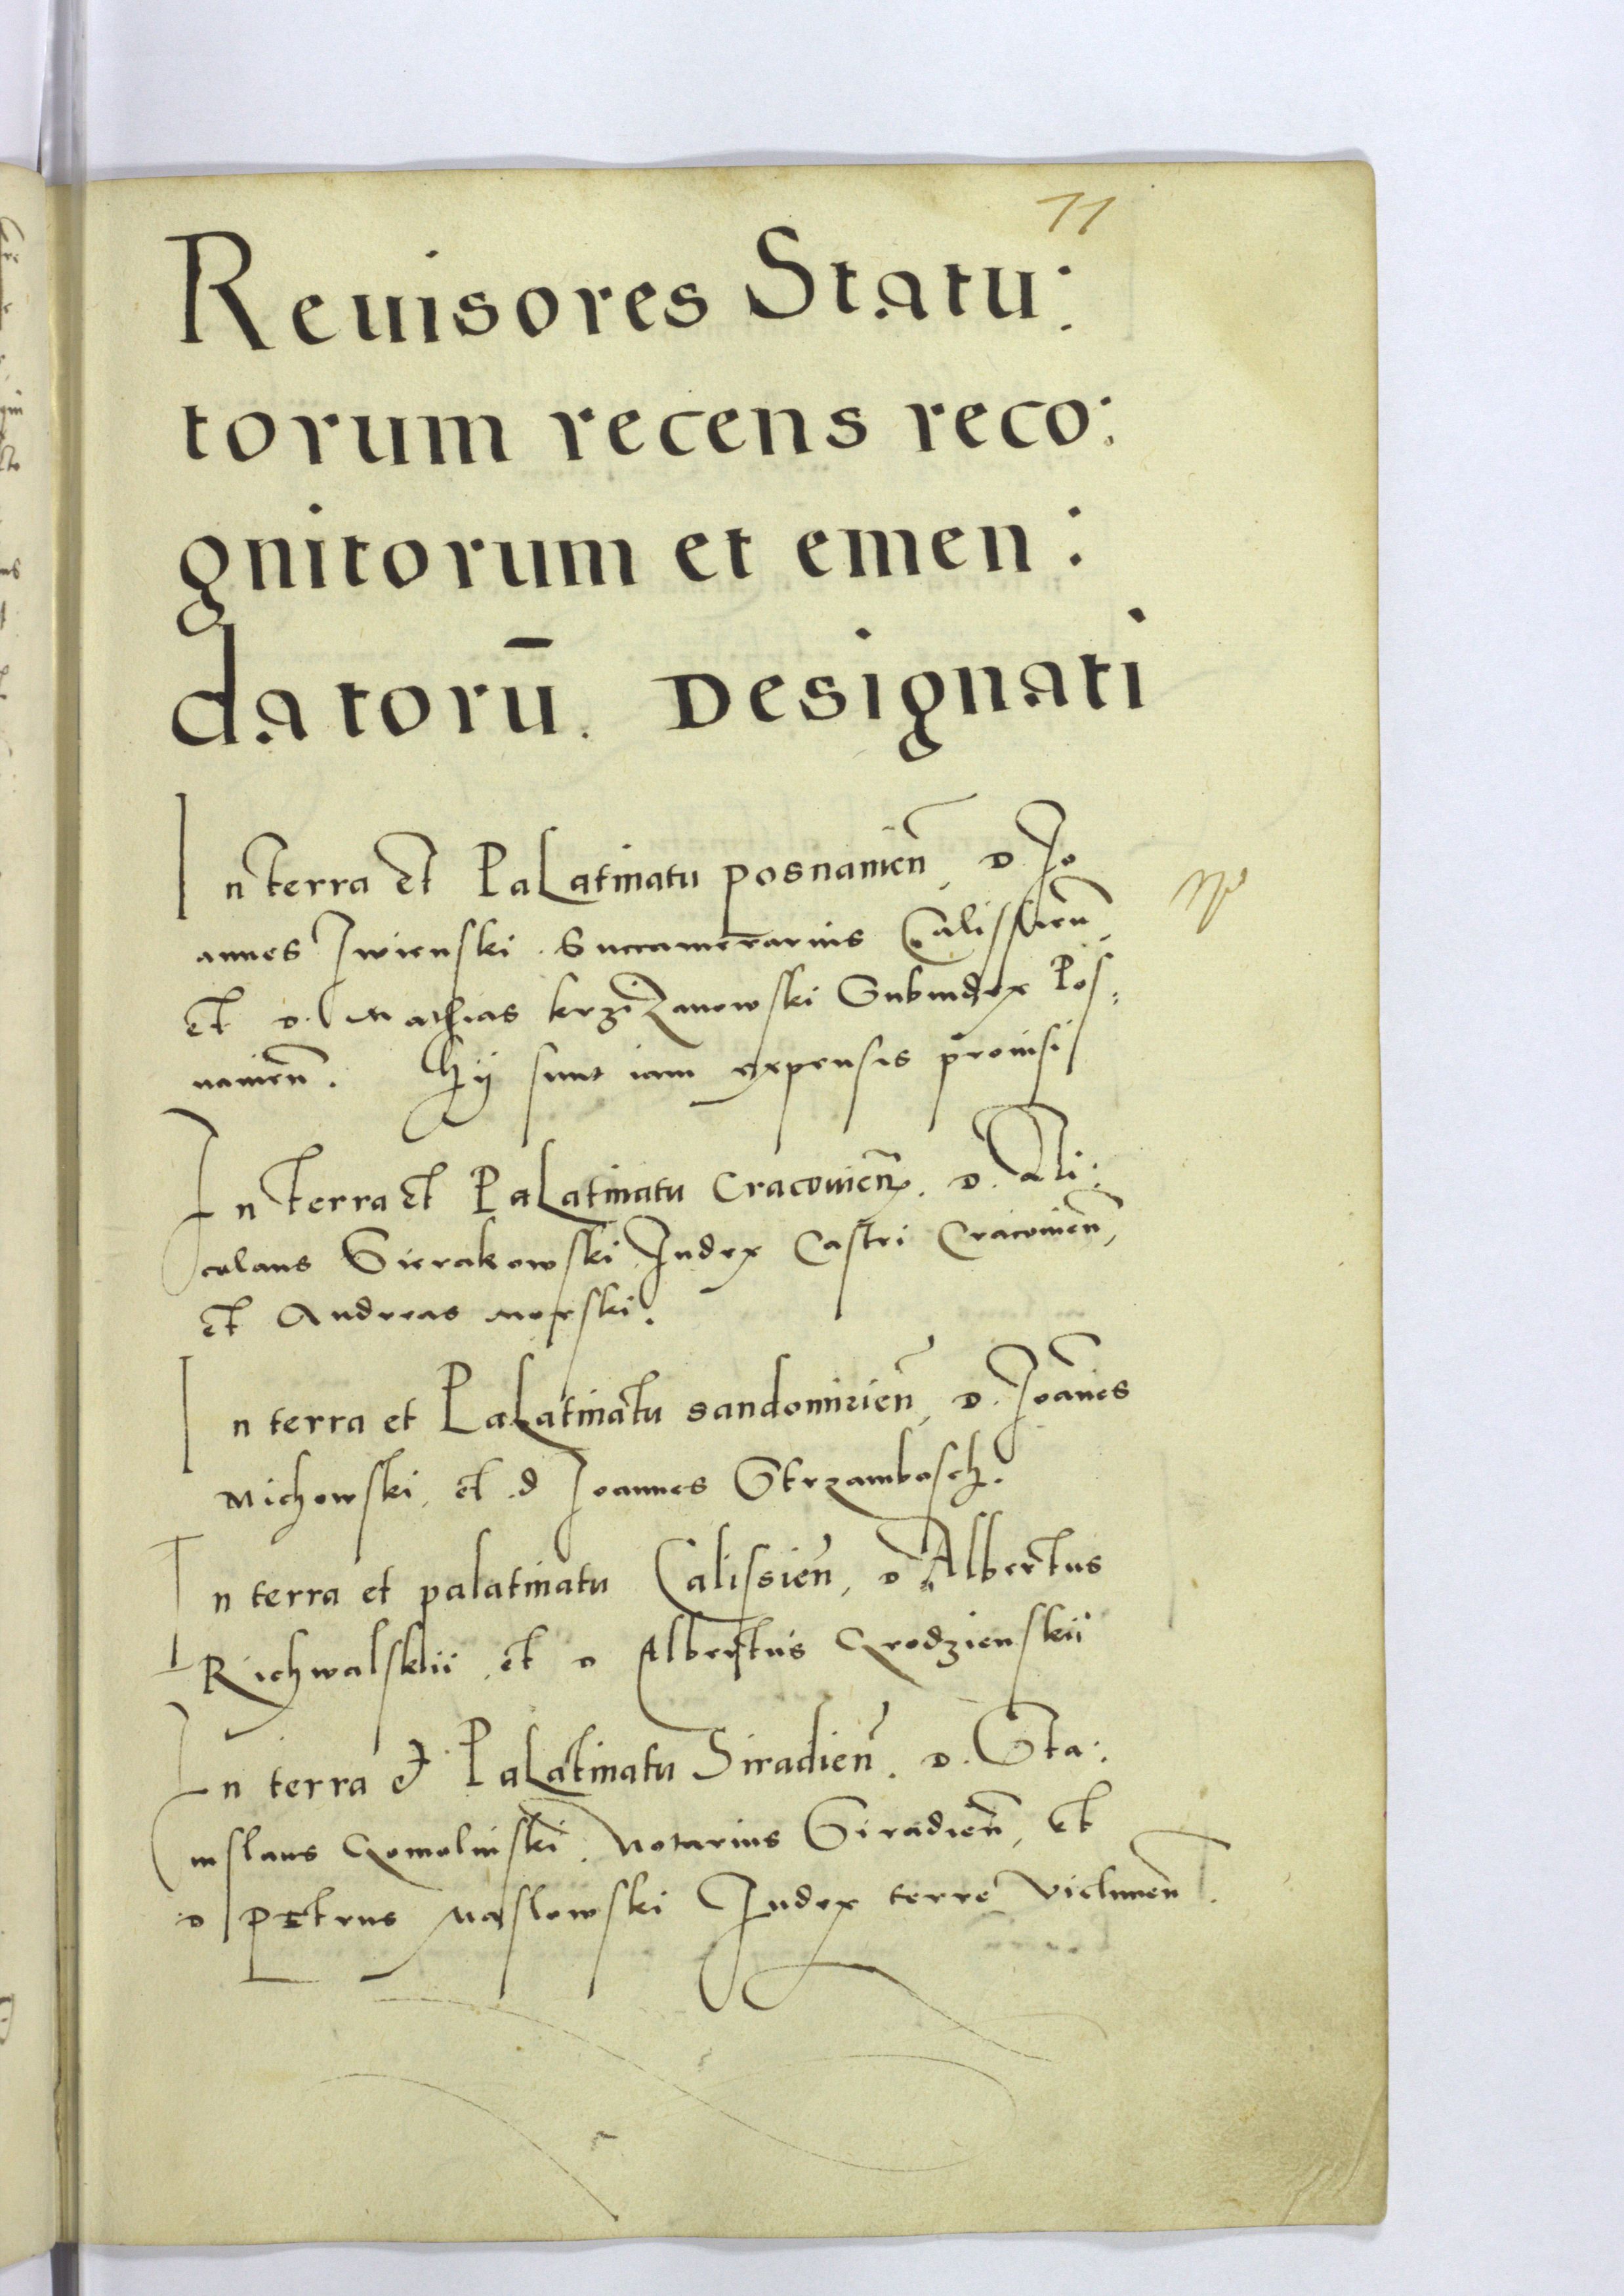 11
Reuisores Statu:
torum recens reco:
gnitorum et emen:
datorū. Designati
In terra et Palatinatu posnanień, D. Jo
annes Iwienski. Succamerarius Calissień,
et D. Mathias krziżanowski Subiudex Pos:
nanień. Hij sunt iam expensis prouisi
In terra et Palatinatu Cracouień. D. Ni:
colaus Sierakowski Iudex Castri Cracouień,
et Andreas Morski.
In terra et Palatinatu sandomirień, D. Joānes
Michowski, et d Joannes Strzambosch.
In terra et palatinatu Calissień, D Albertus
Richwalskii, et D Albertus Grodzienskii
In terra et Palatinatu Siradień. D. Sta:
nislaus Gomolinski. Notarius Siradień, et
D Petrus Maslowski Iudex terre Vieluneń.